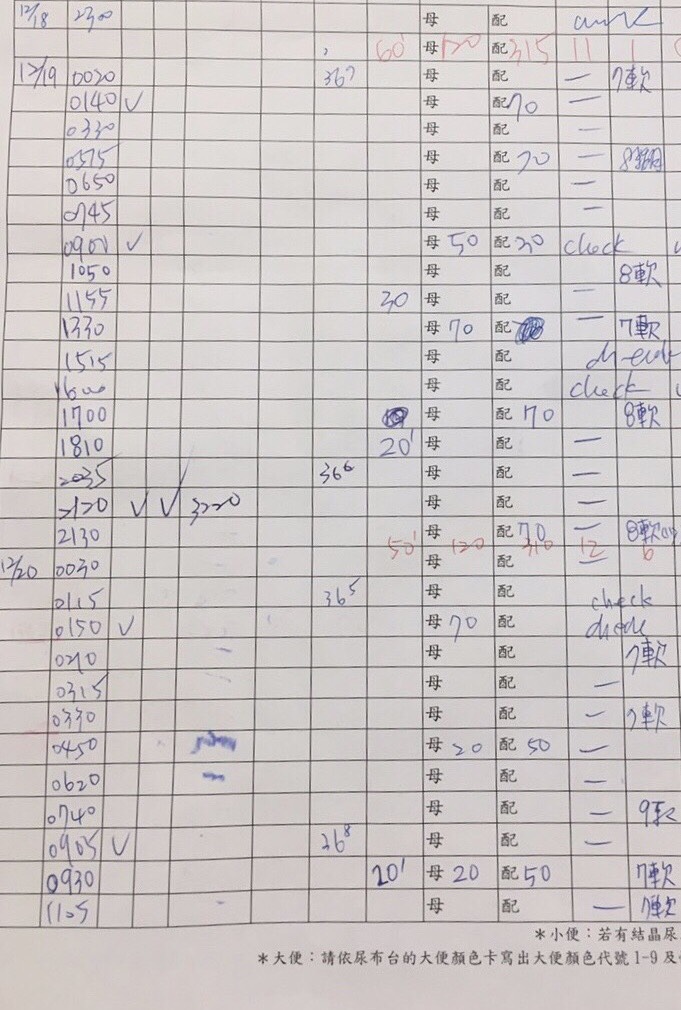 12/18 2300 母 配
60' 母 120 配 315 11 1
12/19 0020 36⁷ 母 配 一 7軟
0140 ✓ 母 配 70 一
0330 母 配 一
母 配 70 一
0650 母 配 一
0745 母 配 一
0900 ✓ 母 50 配 20 check
1050 母 配 8軟
1155 30 母 配 一
1330 母 70 配 一 7軟
1515 母 配
1600 母 配 check
1700 母 配 70 8軟
1810 20' 母 配 一
2035 36⁶ 母 配 一
2120 ✓ ✓ 3220 母 配 一
2130 母 配 70 一 8軟
50' 120 310 12 6
12/20 0030 母 配 一
0115 36⁵ 母 配 check
0150 ✓ 母 70 配
0210 母 配 7軟
0315 母 配 一
0330 母 配 一 7軟
0450 母 20 配 50 一
0620 母 配 一
0740 母 配 一 9軟
0905 ✓ 36⁸ 母 配 一
0930 20' 母 20 配 50 7軟
1105 母 配 一 7軟
*小便：若有結晶尿
*大便：請依尿布台的大便顏色卡寫出大便顏色代號1-9及